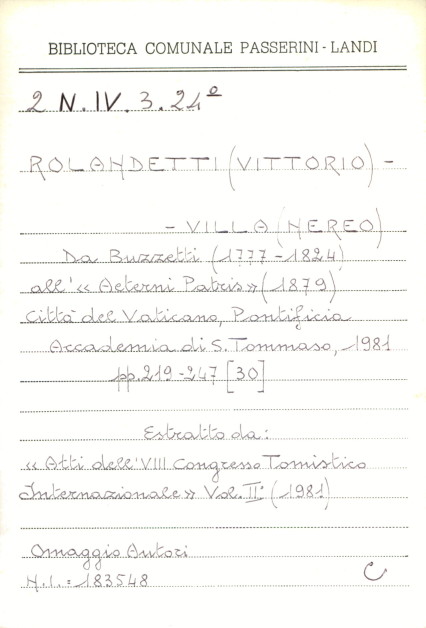 BIBLIOTECA COMUNALE PASSERINI - LANDI
2 N.IV. 3. 24º
ROLANDETTI (VITTORIO) -
- VILLA (NEREO)
Da Buzzetti (1777-1824)
all'« Aeterni Patris» (1879)
Città del Vaticano, Pontificia
Accademia di S. Tommaso, 1981
pp. 219-247 [30]
Estratto da:
« Atti dell'VIII Congresso Tomistico
Internazionale» Vol. IIº (1981)
Omaggio Autori
N.I.: 183548
C